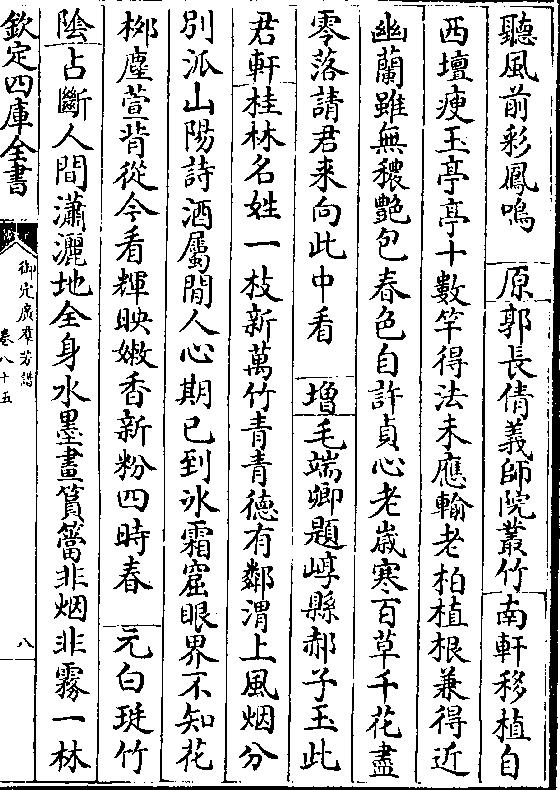 聽風前彩鳳鳴　原郭長倩義師院叢竹南軒移植自
西壇痩玉亭亭十數竿得法未應輸老柏植根兼得近
幽蘭雖無穠艷包春色自許貞心老歳寒百草千花盡
零落請君来向此中看　增毛端卿題崞縣郝子玉此
君軒桂林名姓一枝新萬竹青青德有鄰渭上風烟分
別派山陽詩酒屬閒人心期已到氷霜窟眼界不知花
柳塵萱背從今看輝映嫩香新粉四時春　元白珽竹
陰占斷人間瀟灑地全身水墨畫篔簹非烟非霧一林
欽定四庫全書
御定廣羣芳譜
卷八十五
八